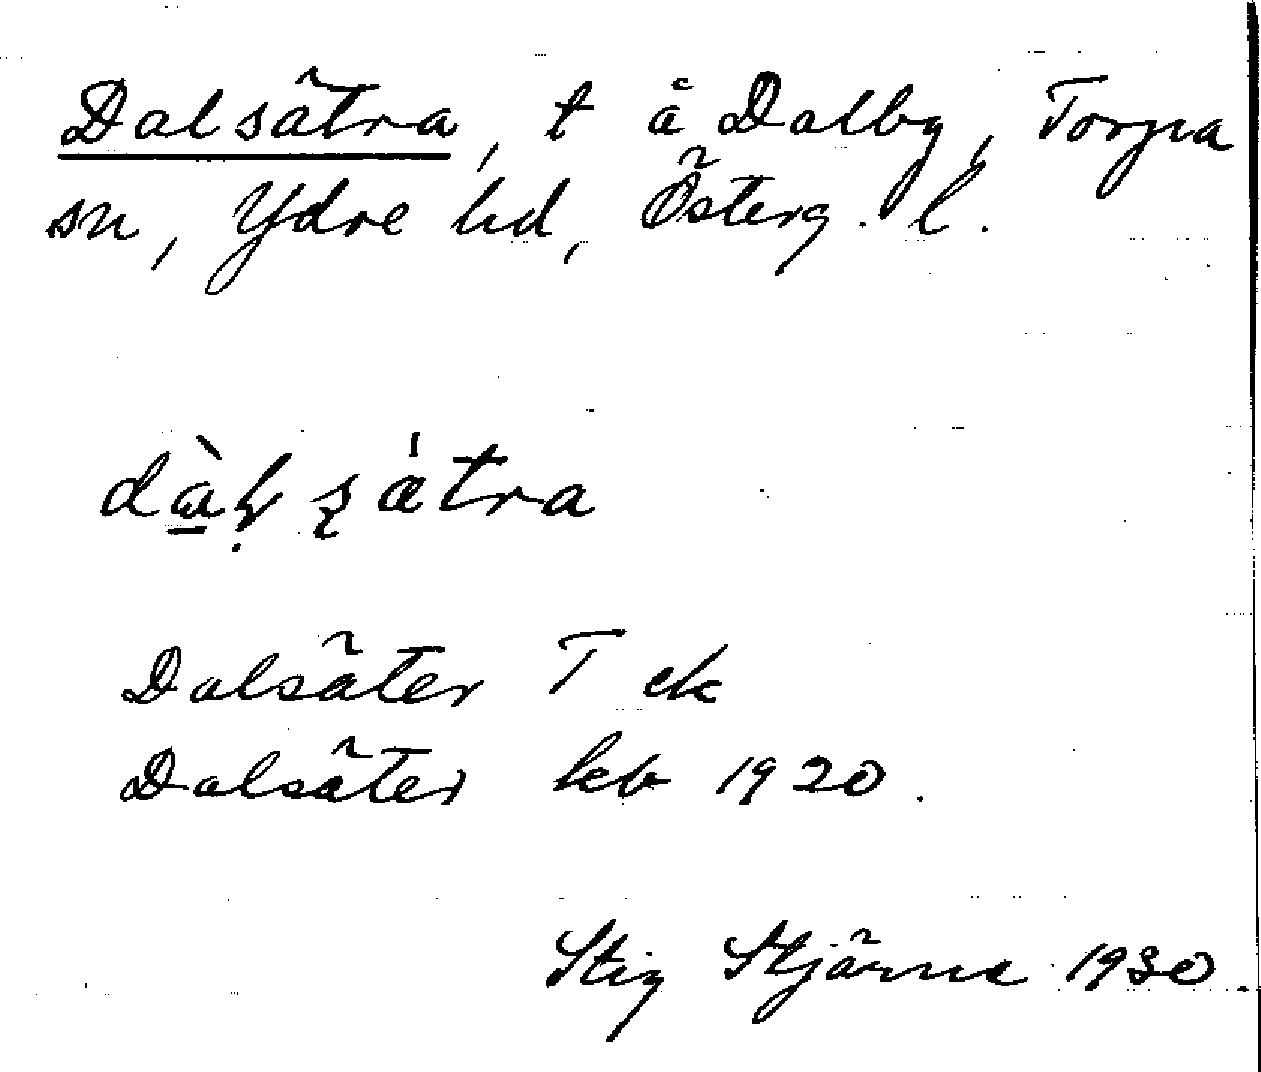 Dalsätra, t å Dalby, Torpa
sn, Ydre hd, Österg. l.
Dalsäter T ek
Dalsäter kb 1920.
Stig Stjärne 1930.